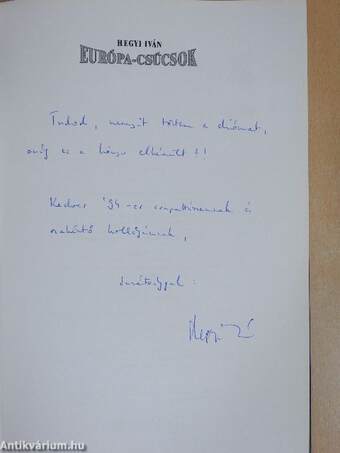 HEGYI IVÁN
EURÓPA-CSÚCSOK
Tudod, mennyit törtem a diómat,
míg ez a könyv elkészült!!
Kedves '94-es csapattársamnak és
szakértő kollégámnak,
barátsággal:
Hegyi Iván
Antikvárium.hu